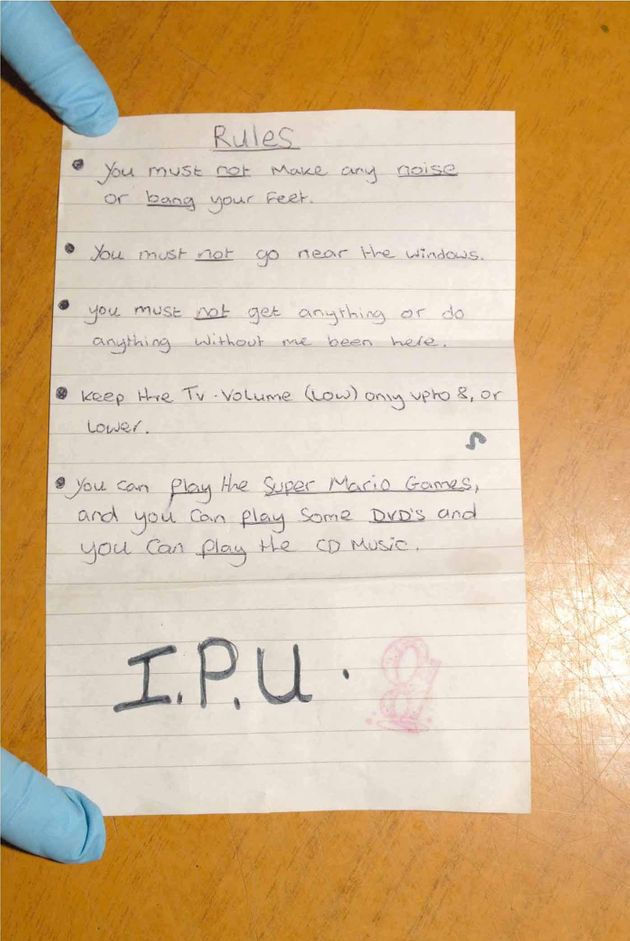 Rules
• You must not make any noise
or bang your feet.
• You must not go near the windows.
• you must not get anything or do
anything without me been here.
• Keep thre Tv. Volume (Low) only upto 8, or
Lower.
• You can play the Super Mario Games,
and you Can play Some DVD's and
you Can play the CD Music.
I.P.U.